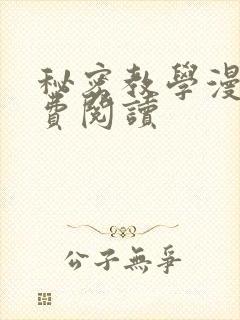 秘密教學漫
費閱讀
公子無爭